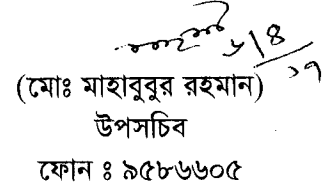 ৬/৪/১৭
(মোঃ মাহাবুবুর রহমান)
উপসচিব
ফোন ঃ ৯৫৮৬৬০৫